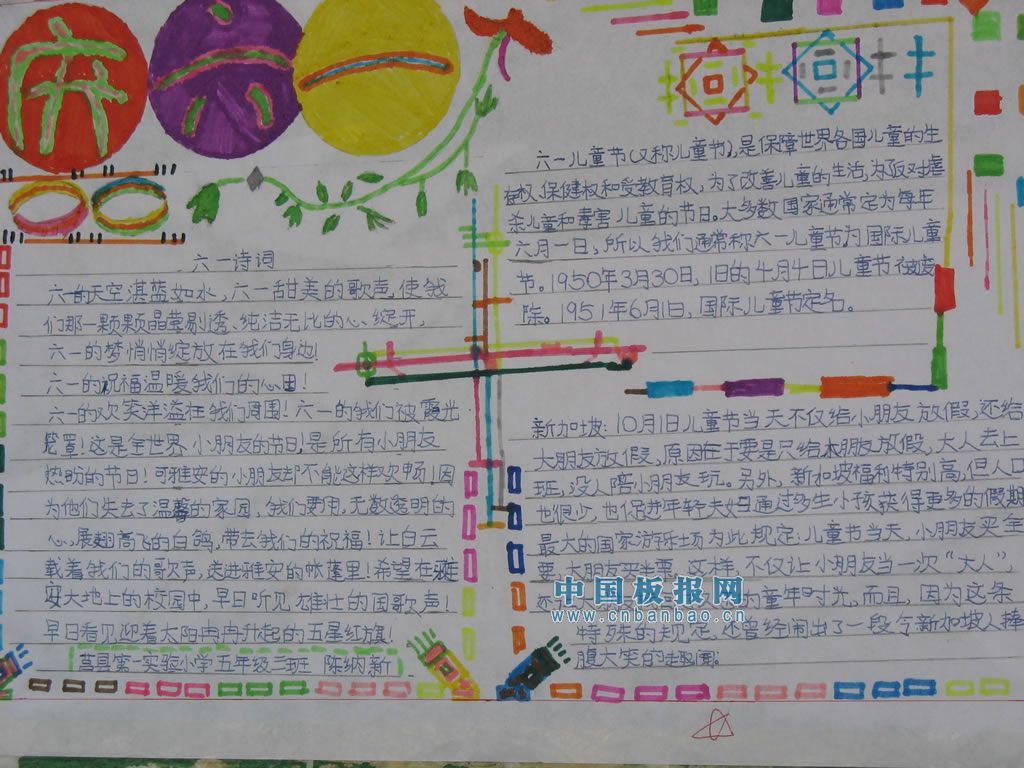 庆六一
六一诗词
六一的天空湛蓝如水,六一甜美的歌声,使我
们那一颗颗晶莹剔透、纯洁无比的心绽开,
六一的梦悄悄绽放在我们身边!
六一的祝福温暖我们的心田!
六一的欢笑洋溢在我们周围!六一的我们被霞光
笼罩!这是全世界小朋友的节日!是所有小朋友
热盼的节日!可雅安的小朋友却不能这样欢畅!因
为他们失去了温馨的家园,我们要用无数透明的
心,展翅高飞的白鸽,带去我们的祝福!让白云
载着我们的歌声,走进雅安的帐蓬里!希望在雅
安大地上的校园中,早日听见雄壮的国歌声!
早日看见迎着太阳冉冉升起的五星红旗!
莒县第一实验小学五年级三班 陈纳新
六一儿童节(又称儿童节),是保障世界各国儿童的生
存权、保健权和受教育权,为了改善儿童的生活,为反对虐
杀儿童和毒害儿童的节日。大多数国家通常定为每年
六月一日,所以我们通常称六一儿童节为国际儿童
节。1950年3月30日,旧的4月4日儿童节被废
除。1951年6月1日,国际儿童节定名。
新加坡:10月1日儿童节当天不仅给小朋友放假,还给
大朋友放假,原因在于要是只给小朋友放假,大人去上
班,没人陪小朋友玩。另外,新加坡福利特别高,但人口
也很少,也促进年轻夫妇通过多生小孩获得更多的假期
最大的国家游乐场为此规定:儿童节当天,小朋友买全
票,大朋友买半票,这样,不仅让小朋友当一次“大人”,
还 的童年时光,而且,因为这条
特殊的规定,还曾经闹出了一段令新加坡人捧
腹大笑的趣闻。
中国板报网
www.cnbanbao.cn